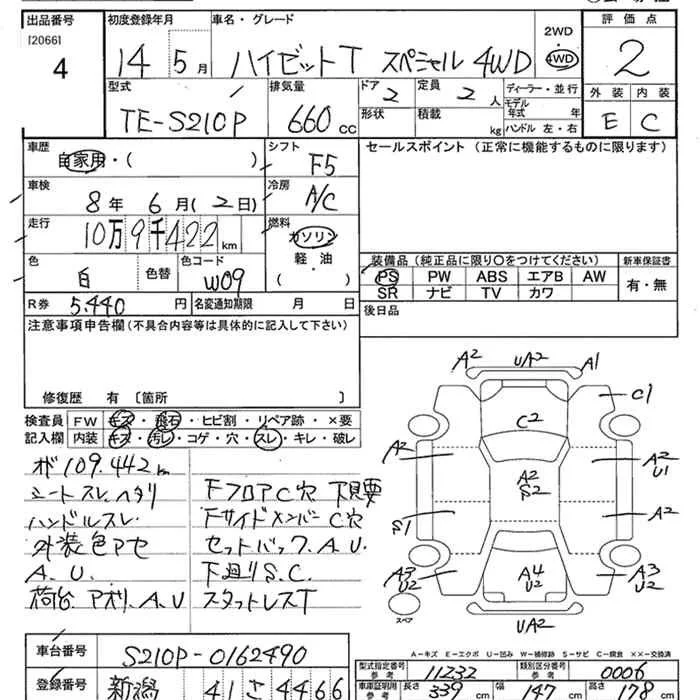 出品番号 初度登録年月 車名・グレード 2WD 評価点
[2066]
4 14 5月 ハイゼットT スペシャル 4WD 4WD 2
型式 排気量 ドア 2 定員 2人 ディーラー・並行 外装 内装
TE-S210P 660cc 形状 積載 kg モデル年式 年 ハンドル 左・右 E C
車歴 シフト セールスポイント(正常に機能するものに限ります)
自家用・( ) F5
車検 冷房
8年 6月(2日) A/C
走行 燃料
10万9千422km ガソリン
色 色替 色コード 軽・油 装備品(純正品に限り○をつけてください) 新車保証書
白 W09 ( ) PS PW ABS エアB AW 有・無
SR ナビ TV カワ
R券 5,440円 名変通知期限 月 日 後日品
注意事項申告欄(不具合内容等は具体的に記入して下さい)
修復歴 有 〔箇所 〕
検査員 FW キズ・飛石・ヒビ割・リペア跡・×要
記入欄 内装 キズ・汚レ・コゲ・穴・スレ・キレ・破レ
メ109.442km
シートスレ、ヘタリ 下フロアC穴 下見要
ハンドルスレ 下サイドメンバーC穴
外装色アセ セットバック.A.U.
A.U. 下廻りS.C.
荷台 アオリ.A.U スタットレスT
A2 UA2 A1
C1
C2
A2 A2 U1
A2 S2
S1 A2
A3 U2 A4 U2 A3 U2
スペア UA2
A-キズ E-エクボ U-凹み W-補修跡 S-サビ C-腐食 ××-交換済
車台番号 S210P-0162490 型式指定番号 参考 11232 類別区分番号 参考 0006
登録番号 新潟 41 さ 4466 車庫証明用 参考 長さ 339cm 幅 147cm 高さ 178cm